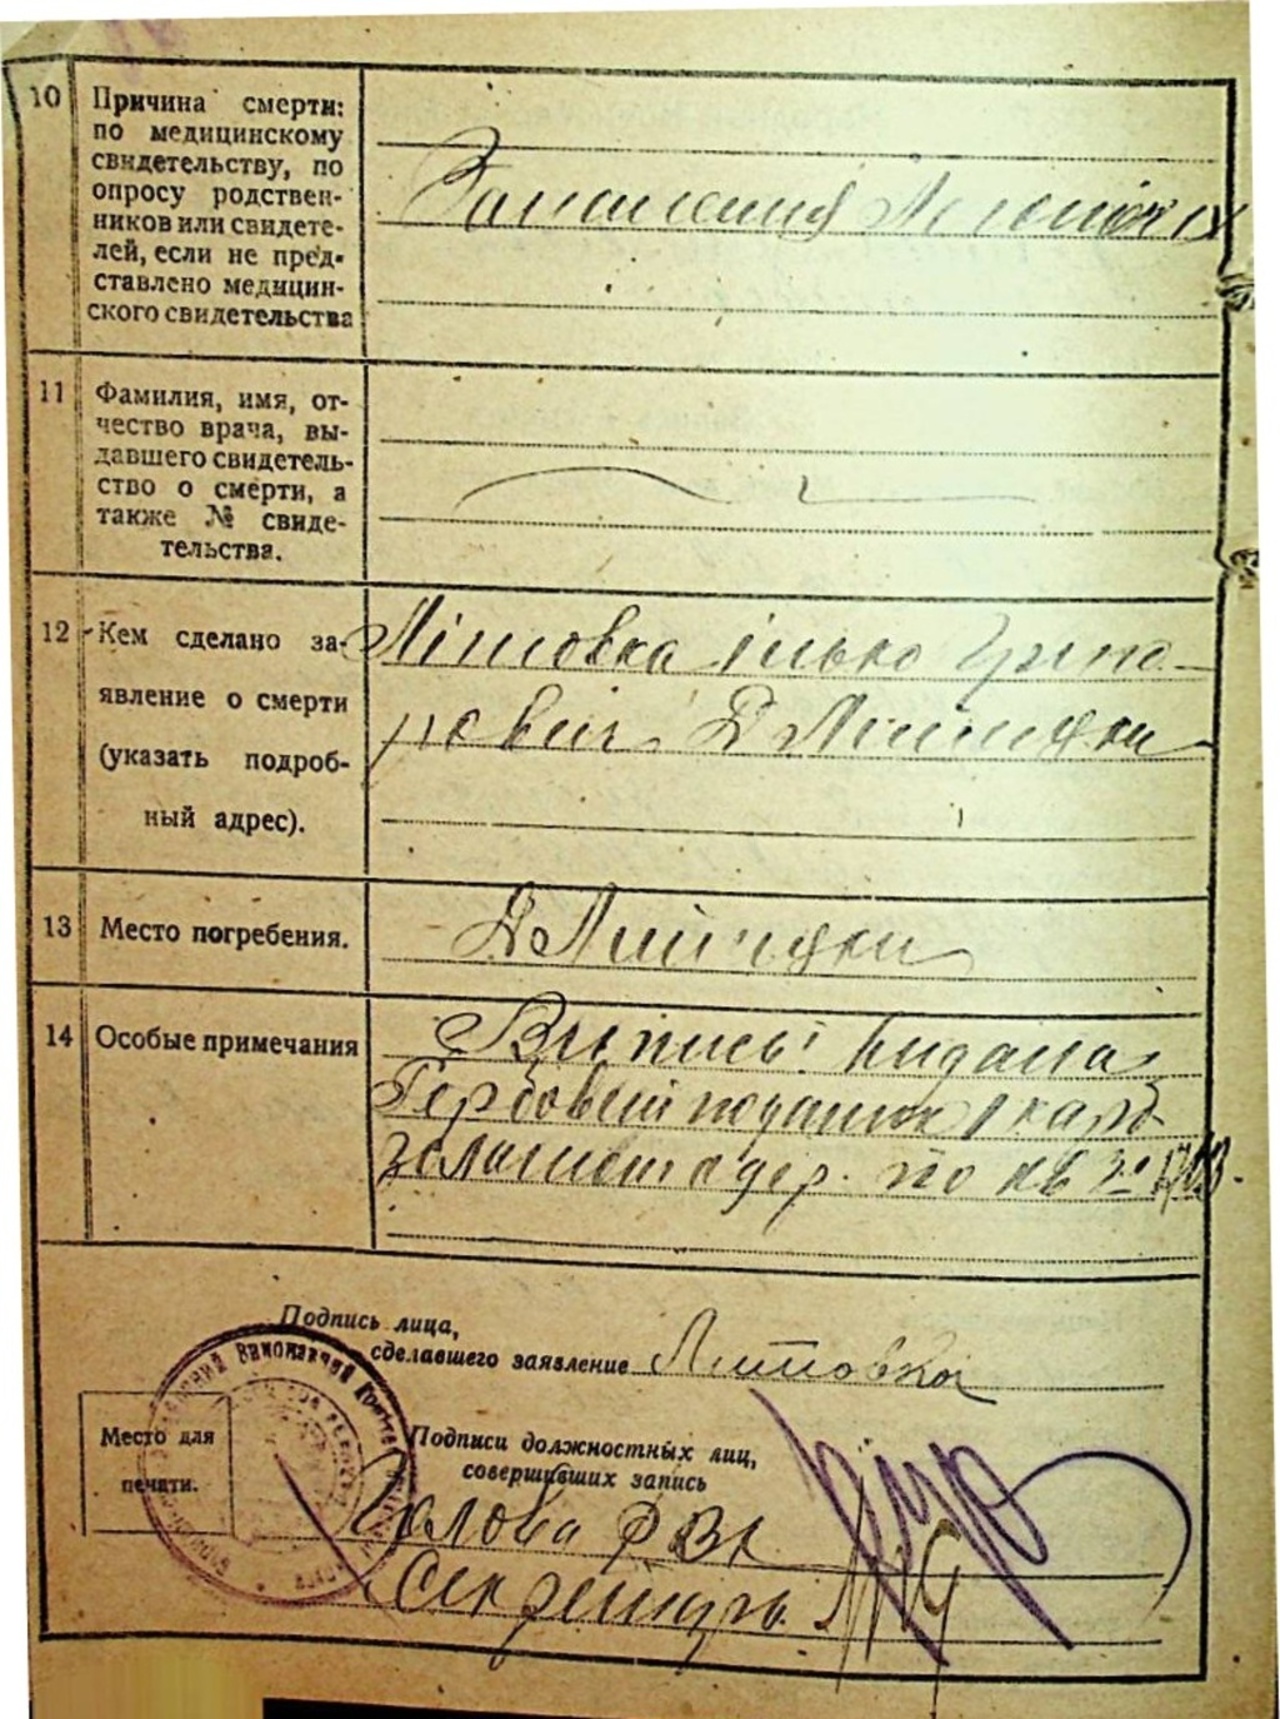 10
Причина смерти:
по медицинскому
свидетельству, по
опросу родствен-
ников или свидете-
лей, если не пред-
ставлено медицин-
ского свидетельства
Запалення
11
Фамилия, имя, от-
чество врача, вы-
давшего свидетель-
ство о смерти, а
также № свиде-
тельства.
12
Кем сделано за-
явление о смерти
(указать подроб-
ный адрес).
Літовка Ілько Григо-
рович
13
Место погребения.
14
Особые примечания
Випись видана
Гербовий податок 1 карб
по кв
Подпись лица,
сделавшего заявление Литовка
Место для
печати.
Виконавчий Коміте
Подписи должностных лиц,
совершивших запись
Голова РВК
Секретарь